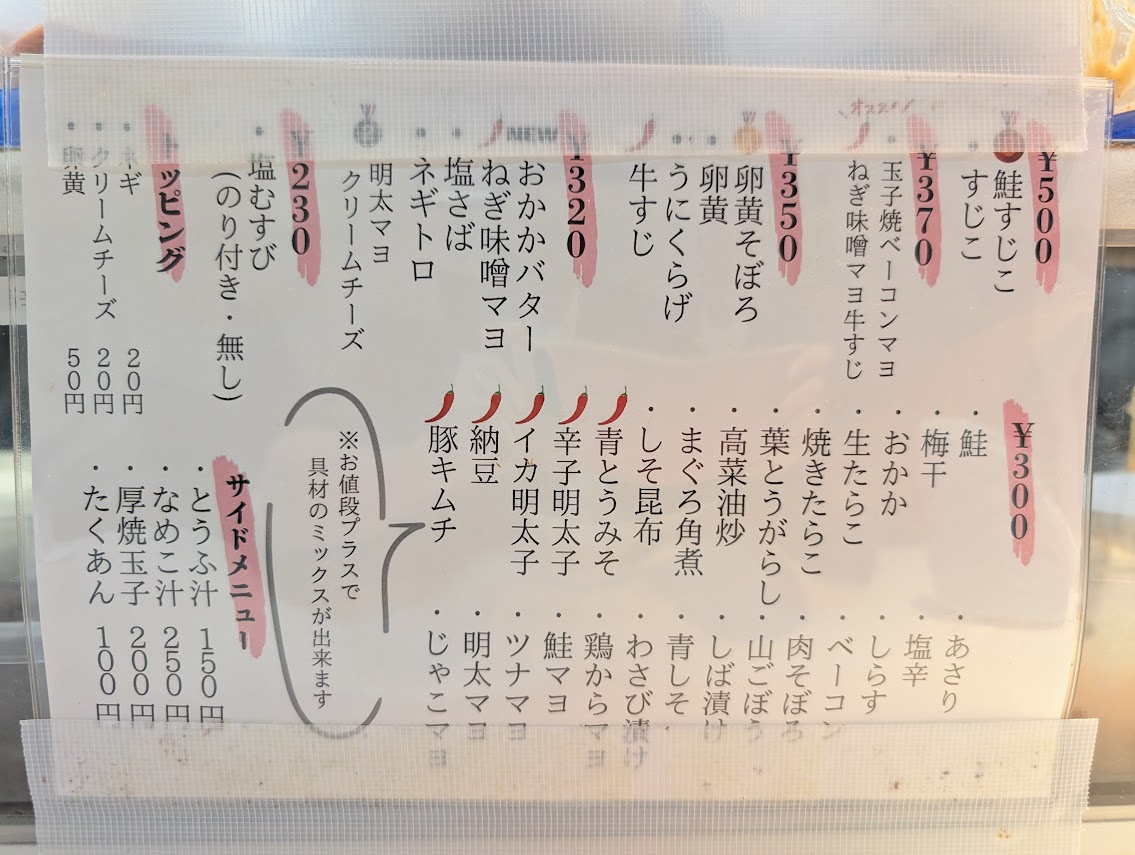 オススメ!
¥500
鮭すじこ
すじこ
¥370
玉子焼ベーコンマヨ
ねぎ味噌マヨ牛すじ
¥350
卵黄そぼろ
卵黄
うにくらげ
牛すじ
¥320
NEW
おかかバター
ねぎ味噌マヨ
塩さば
ネギトロ
明太マヨ
クリームチーズ
¥230
・塩むすび
(のり付き・無し)
トッピング
・ネギ 20円
・クリームチーズ 20円
・卵黄 50円
¥300
・鮭
・梅干
・おかか
・生たらこ
・焼きたらこ
・葉とうがらし
・高菜油炒
・まぐろ角煮
・しそ昆布
青とうみそ
辛子明太子
イカ明太子
納豆
豚キムチ
・あさり
・塩辛
・しらす
・ベーコン
・肉そぼろ
・山ごぼう
・しば漬け
・青しそ
・わさび漬け
・鶏からマヨ
・鮭マヨ
・ツナマヨ
・明太マヨ
・じゃこマヨ
※お値段プラスで
具材のミックスが出来ます
サイドメニュー
・とうふ汁 150円
・なめこ汁 250円
・厚焼玉子 200円
・たくあん 100円